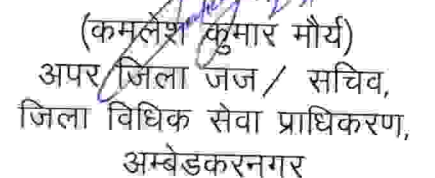 (कमलेश कुमार मौर्य)
अपर जिला जज / सचिव,
जिला विधिक सेवा प्राधिकरण,
अम्बेडकरनगर